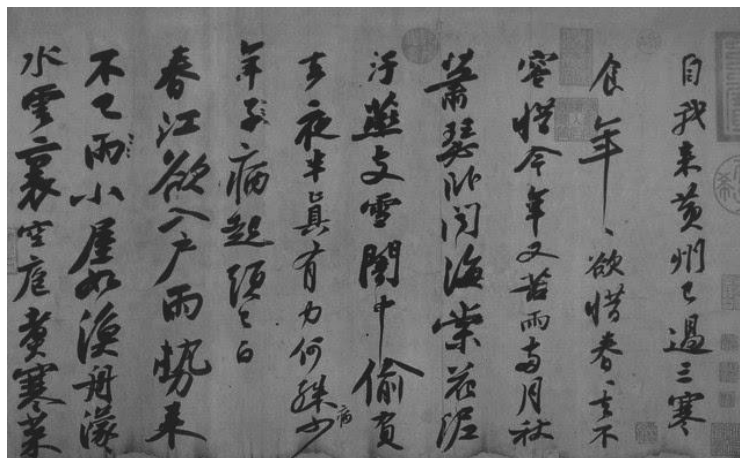 自我来黄州已過三寒
食年〻欲惜春〻去不
容惜今年又苦雨两月秋
蕭瑟卧聞海棠花泥
汙燕支雪闇中偷負
去夜半真有力何殊少
年子病起頭已白
春江欲入户雨勢来
不已雨小屋如漁舟濛〻
水雲裏空庖煮寒菜
病